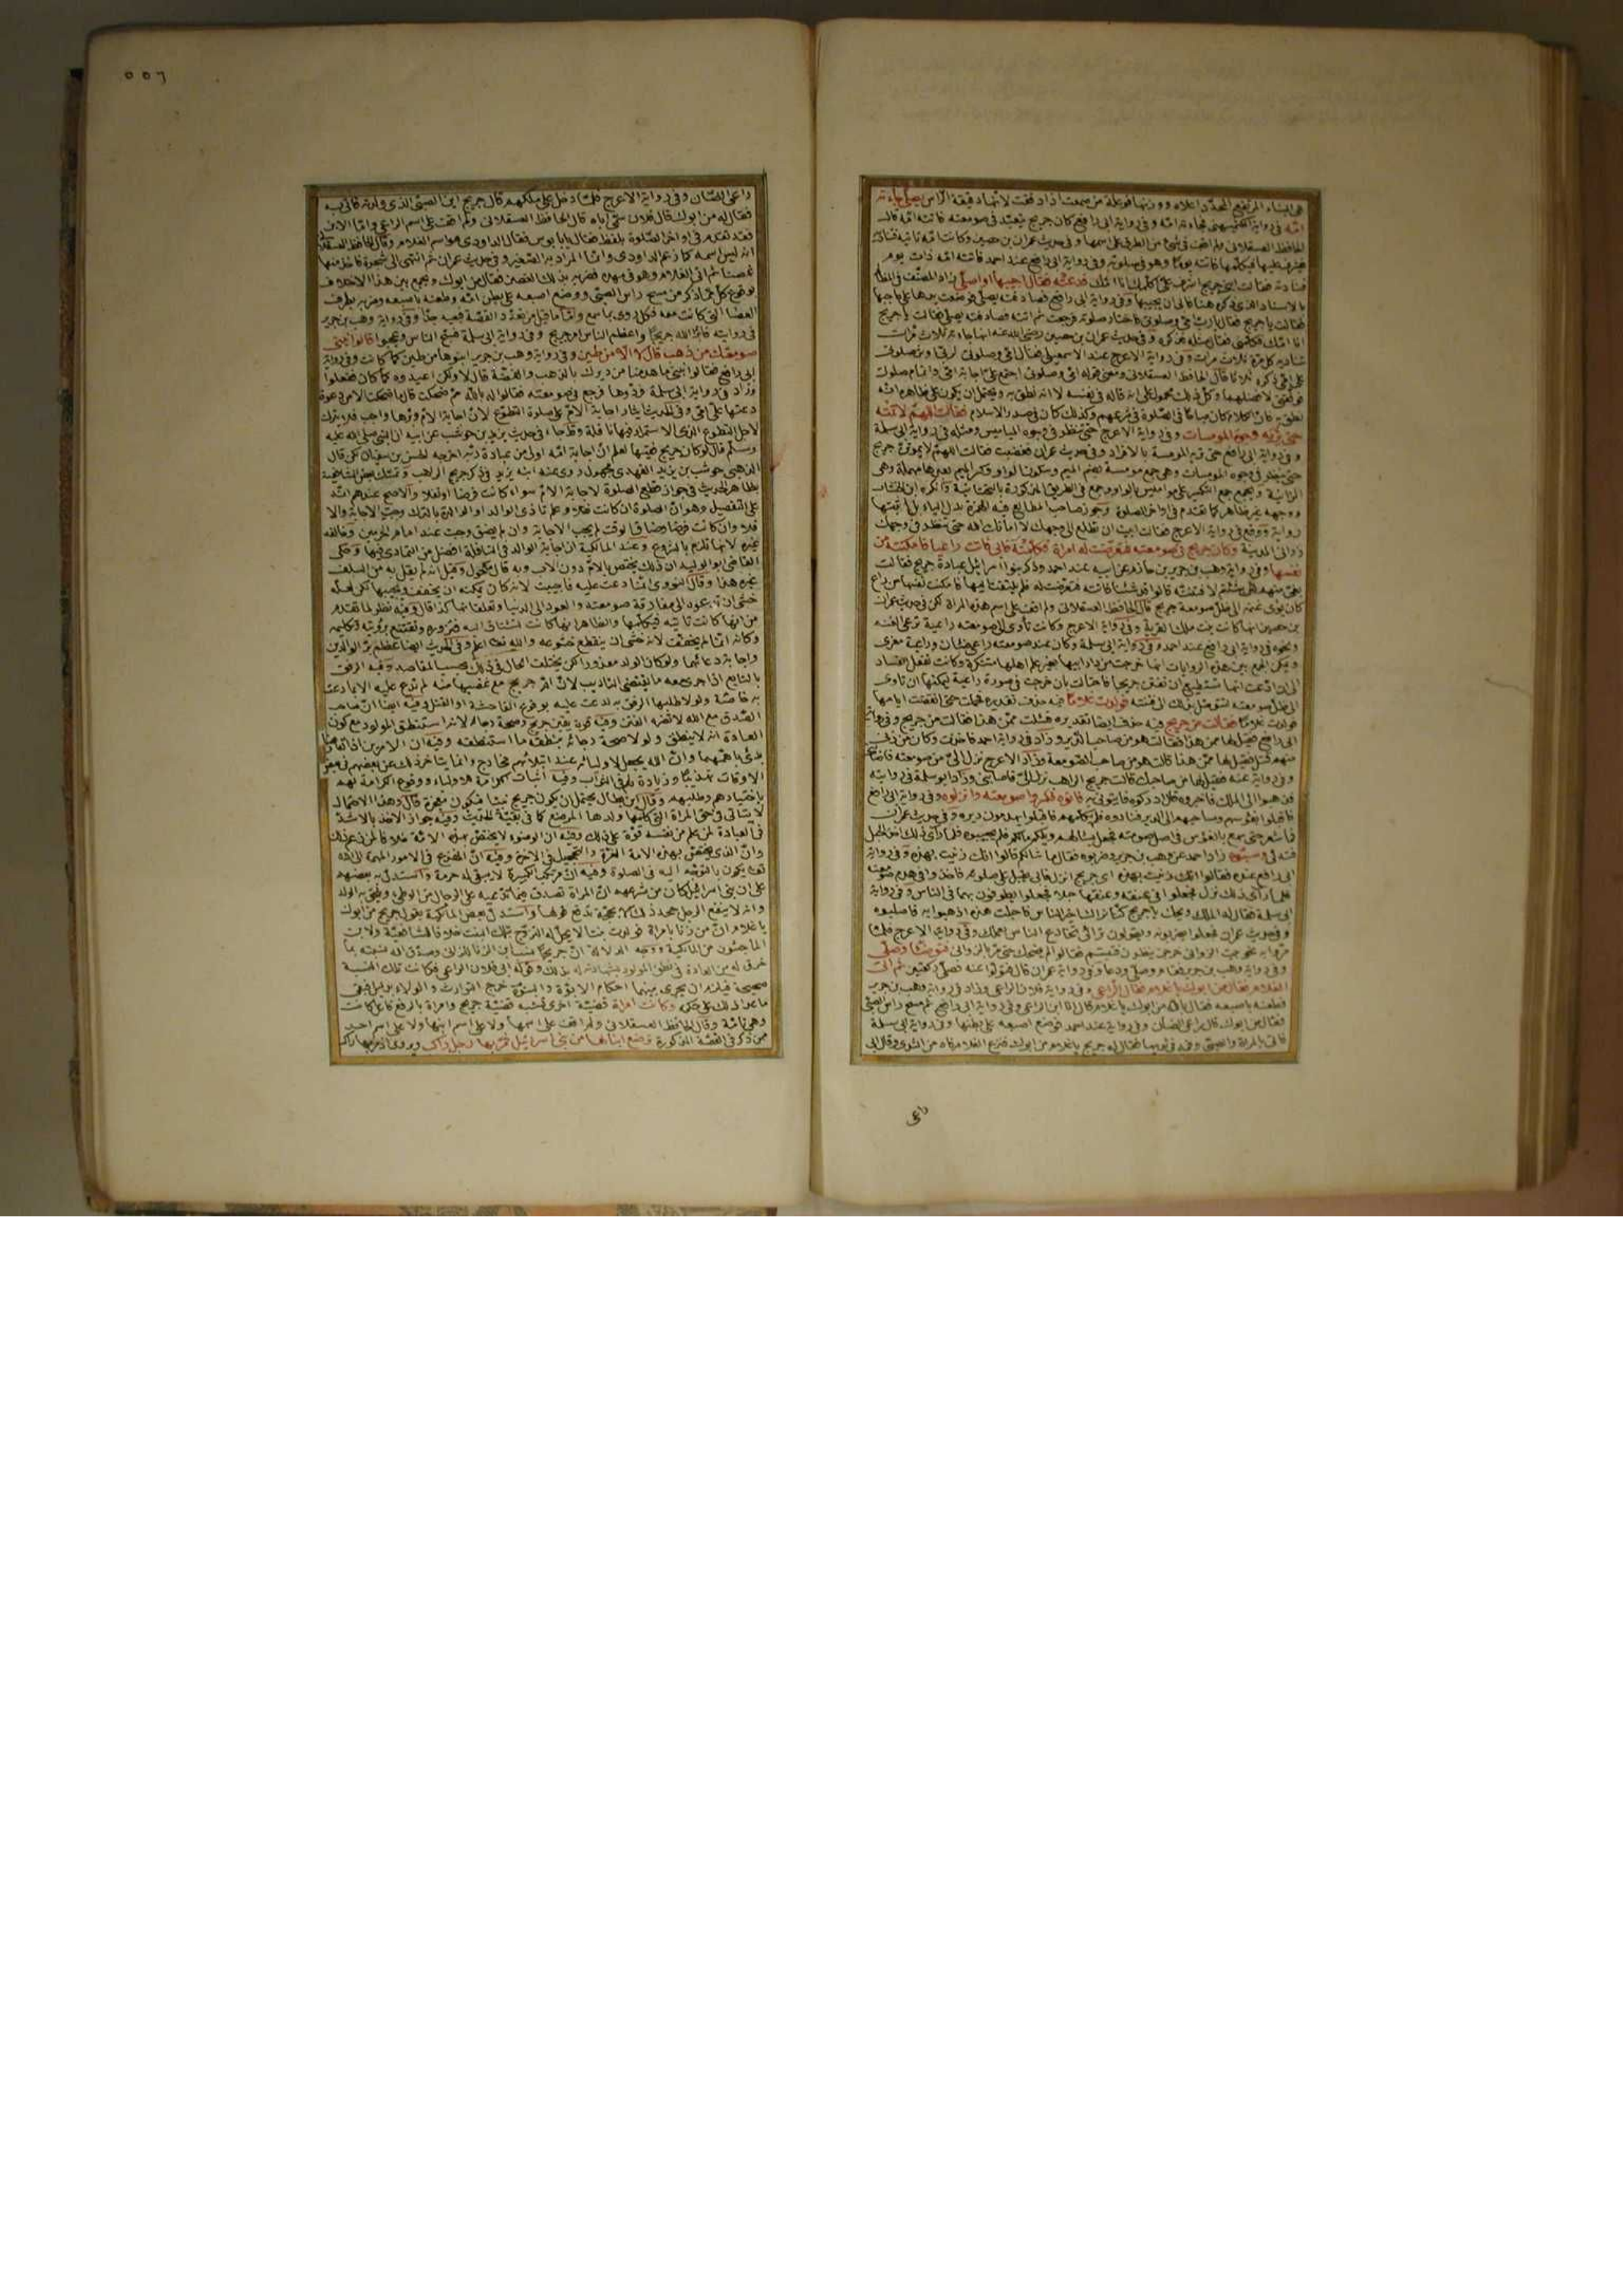 هى البناء المرتفع المحدّد اعلاه ووزنها فوعلة من صمعت اذا دققت لانها دقيقة الرأس يصلى جاءته
امّه فى رواية الكشميهنى فجاءته امّه وفى رواية ابى رافع كان جريج يتعبّد فى صومعته فاتته امّه قال
الحافظ العسقلانى ولم اقف فى شئ من الطرق على اسمها وفى حديث عمران بن حصين وكانت امّه تأتيه فتناديه
فيشرف عليها فيكلّمها فاتته يومًا وهو فى صلوته وفى رواية ابى رافع عند احمد فاتته امّه ذات يوم
فنادته فقالت اى جريج اشرف علىّ اكلمك انا امّك فدعته فقال اجيبها او اصلّى زاد المصنّف فى المظالم
فقالت يا جريج فقال يا ربّ امّى وصلوتى فاختار صلوته فرجعت ثم اتته فصادفته يصلّى فقالت يا جريج
انا امّك فكلّمنى فقال مثله فذكره وفى حديث عمران بن حصين رضى الله عنه انها جاءته ثلاث مرّات
تناديه كلّ مرّة ثلاث مرات وفى رواية الاعرج عند الاسمعيلى فقال امّى وصلوتى لربّى اوثر صلوتى
على امّى ذكره ثلاثا قال الحافظ العسقلانى ومعنى قوله امّى وصلوتى اجتمع علىّ اجابة امّى واتمام صلوتى
نطق به لانّ الكلام كان مباحًا فى الصّلوة فى شرعهم وكذلك كان فى صدر الاسلام فقالت اللهمّ لا تمته
حتى تريه وجوه المومسات وفى رواية الاعرج حتى ينظر فى وجوه المياميس ومثله فى رواية ابى سلمة
وفى رواية ابى رافع حتى تريه المومسة بالافراد وفى حديث عمران فغضبت فقالت اللهمّ لا يموتنّ جريج
حتى ينظر فى وجوه المومسات وهى جمع مومسة بضم الميم وسكون الواو وكسر الميم بعدها مهملة وهى
ذوانى المدينة وكان جريج فى صومعته فتعرّضت له امراة فكلّمته فابى فاتت راعيا فامكنته من
نفسها وفى رواية وهب بن جرير بن حازم عن ابيه عند احمد وذكر بنوا اسرائيل عبادة جريج فقالت
بغىّ منهم ان شئتم لافتننّه قالوا قد شئنا فاتته فتعرّضت له فلم يلتفت اليها فامكنت نفسها من راع
كان يؤوى غنمه الى ظلّ صومعة جريج قال الحافظ العسقلانى ولم اقف على اسم هذه المراة لكن فى حديث عمران
بن حصين انها كانت بنت ملك القرية وفى رواية الاعرج وكانت تأوى الى صومعته راعية ترعى الغنم
الى ظلّ صومعته لتتوصّل بذلك الى فتنته فولدت غلامًا فيه حذف تقديره فحملت حتى انقضت ايامها
فولدت غلامًا فقالت من جريج فيه حذف ايضا تقديره فسئلت ممّن هذا فقالت من جريج وفى رواية
ابى رافع فقيل لها ممن هذا فقالت هو من صاحب الدّير وزاد فى رواية احمد فاخذت وكان من زنى
منهم قتل فقيل لها ممّن هذا قالت هو من صاحب الصّومعة وزاد الاعرج نزل الىّ من صومعته
وفى رواية عنه فقيل لها من صاحبك قالت جريج الراهب نزل الىّ فاصابنى وزاد ابو سلمة فى روايته
فذهبوا الى الملك فاخبروه فقال ادركوه فايتونى به فاتوه فكسروا صومعته وانزلوه وفى رواية ابى رافع
فاقبلوا بفؤسهم ومساحيهم الى الدير فنادوه فلم يكلّمهم فاقبلوا يهدمون ديره وفى حديث عمران
فتدلى وسبّوه زاد احمد عن وهب بن جرير وضربوه فقال ما شانكم قالوا انك زنيت بهذه وفى رواية
ابى سلمة فقال له الملك ويحك يا جريج كنّا نراك خير الناس فاحبلت هذه اذهبوا به فاصلبوه
وفى حديث عمران فجعلوا يضربونه ويقولون مرائى تخادع الناس بعملك وفى رواية الاعرج فلمّا
مرّوا به نحو بيت الزوانى خرجن ينظرن فتبسّم فقالوا لم يضحك حتى مرّ بالزوانى فتوضّأ وصلّى
وفى رواية وهب بن جرير فقام وصلّى ودعا وفى رواية عمران قال فتولّوا عنه فصلّى ركعتين ثم اتى
الغلام فقال من ابوك يا غلام فقال الرّاعى وفى رواية فلان الراعى وزاد فى رواية وهب بن جرير
فطعنه باصبعه فقال بالله من ابوك يا غلام فقال انا ابن الراعى وفى رواية ابى رافع ثم مسح راس الصبىّ
فقال من ابوك قال راعى الضان وفى رواية عند احمد فوضع اصبعه على بطنها وفى رواية ابى سلمة
فاتى بالمراة والصبى وفمه فى ثديها فقال له جريج يا غلام من ابوك فنزع الغلام فاه من الثدى وقال ابى
راعى
٥٥٦
راعى الضّان وفى رواية الاعرج فلمّا دخل على ملكهم قال جريج اين الصبىّ الذى ولدته فاتى به
فقال له من ابوك قال فلان سمّى اباه قال الحافظ العسقلانى ولم اقف على اسم الراعى وامّا الابن
فقد تقدّم فى اواخر الصّلوة بلفظ فقال يا بابوس فقال الداودى هو اسم الغلام وقال الحافظ العسقلانى
انه ليس اسمه كما زعم الداودى وانّما المراد به الصّغير وفى حديث عمران ثم انتهى الى شجرة فاخذ منها
غصنا ثم اتى الغلام وهو فى مهده فضربه بذلك الغصن فقال من ابوك ويجمع بين هذا الاختلاف
بوقوع كلّ ممّا ذكر من مسح راس الصبىّ ووضع اصبعه على بطن امّه وطعنه باصبعه وضربه بطرف
العصا التى كانت معه فكلّ روى بما سمع وامّا ما قيل من تعدّد القصّة فبعيد جدّا وفى رواية وهب بن جرير
فى روايته فابرأ الله جريجًا واعظم الناس امر جريج وفى رواية ابى سلمة فسبّح الناس وعجبوا قالوا نبنى
صومعتك من ذهب قال لا الّا من طين وفى رواية وهب بن جرير ابنوها من طين كما كانت وفى رواية
ابى رافع فقالوا نبنى ما هدمنا من ديرك بالذهب والفضّة قال لا ولكن اعيدوه كما كان ففعلوا
وزاد فى رواية ابى سلمة فردّوها فرجع فى صومعته فقالوا له بالله ممّ ضحكت قال ما ضحكت الّا من دعوة
دعتها علىّ امّى وفى الحديث ايثار اجابة الامّ على صلوة التطوّع لانّ اجابة الامّ وبرّها واجب فلا يترك
لاجل التطوع الذى الاستمرار فيها نافلة وقد جاء فى حديث يزيد بن حوشب عن ابيه ان النبى صلى الله عليه
وسلّم قال لو كان جريج فقيها لعلم انّ اجابة امّه اولى من عبادة ربّه اخرجه الحسن بن سفيان لكن قال
بظاهر الحديث فى جواز قطع الصلوة لاجابة الامّ سواء كانت فرضا او نفلا والاصح عندهم انّه
على التفصيل وهو انّ الصلوة ان كانت نفلا وعلم تأذى الوالد او الوالدة بالترك وجبت الاجابة والّا
فلا وان كانت فرضا وضاق الوقت لم يجب الاجابة وان لم يضق وجبت عند امام الحرمين وخالفه
غيره لانها تلزم بالشروع وعند المالكية ان اجابة الوالد فى النافلة افضل من التمادى فيها وحكى
القاضى ابو الوليد ان ذلك يختصّ بالامّ دون الاب وبه قال مكحول وقيل انّه لم يقل به من السلف
غيره هذا وقال النووى انما دعت عليه فاجيبت لانّه كان يمكنه ان يخفّف ويجيبها لكن لعلّه
خشى ان تدعوه الى مفارقة صومعته والعود الى الدنيا وتعلقاتها كذا قال وفيه نظر لما تقدّم
من انها كانت تاتيه فيكلّمها والظاهر انها كانت تشتاق اليه فتزوره وتقتنع برؤيته وتكليمه
وكانه انّما لم يخفّف لانه خشى ان ينقطع خشوعه والله تعالى اعلم وفى الحديث ايضا عظم برّ الوالدين
واجابة دعائهما ولو كان الولد معذورا لكن يختلف الحال فى ذلك بحسب المقاصد وفيه الرفق
بالتابع اذا جرى معه ما يقتضى التاديب لانّ امّ جريج مع غضبها منه لم تدع عليه الّا بما دعت
به خاصّة ولولا طلبها الرفق به لدعت عليه بوقوع الفاحشة او القتل وفيه ايضا انّ صاحب
الصّدق مع الله لا تضرّه الفتن وفيه قوّة يقين جريج وصحة رجائه لانه استنطق المولود مع كون
العادة انه لا ينطق ولولا صحة رجائه بنطقه ما استنطقه وفيه ان الامرين اذا تعارضا
بدئ باهمّهما وانّ الله يجعل لاوليائه عند ابتلائهم مخارج وانما يتاخر ذلك عن بعضهم فى بعض
الاوقات تهذيبًا وزيادة لهم فى الثواب وفيه اثبات كرامة الاولياء ووقوع الكرامة لهم
باختيارهم وطلبهم وقال ابن بطال يحتمل ان يكون جريج نبيّا فيكون معجزة قال وهذا الاحتمال
لا يتأتى فى حق المراة التى كلّمها ولدها المرضع كما فى بقيّة الحديث وفيه جواز الاخذ بالاشدّ
فى العبادة لمن علم من نفسه قوّة على ذلك وفيه ان الوضوء لا يختصّ بهذه الامّة خلافا لمن زعم ذلك
وانّ الذى يختصّ بهذه الامة الغرّة والتحجيل فى الاخرة وفيه انّ المفزع فى الامور المهمّة الى الله
تعالى يكون بالتوجّه اليه فى الصلوة وفيه انّ مرتكب الكبيرة لا يبقى له حرمة واستدل به بعضهم
على ان بنى اسرائيل كان من شرعهم انّ المراة تصدق فيما تدّعيه على الرجال من الوطئ ويلحق به الولد
وانه لا ينفع الرجل جحد ذلك الا بحجّة تدفع قولها واستدلّ بعض المالكية بقول جريج من ابوك
يا غلام انّ من زنا بامراة فولدت بنتا لا يحلّ له التزوج بتلك البنت خلافا للشافعيّة ولابن
الماجشون من المالكية ووجه الدلالة انّ جريجًا نسب ابن الزنا للزانى وصدّق الله نسبته بما
خرق له من العادة فى نطق المولود بشهادته له بذلك وقوله ابى فلان الراعى فكانت تلك النسبة
صحيحة فيلزم ان يجرى بينهما احكام الابوّة والبنوّة خرج التوارث والولاء بدليل فبقى
ما عدا ذلك على حكمه وكانت امراة قضيّة اخرى تشبه قضيّة جريج وامراة بالرفع فاعل كانت
وهى تامّة وقال الحافظ العسقلانى ولم اقف على اسمها ولا على اسم ابنها ولا على اسم احد
ممن ذكر فى القصّة المذكورة ترضع ابنا لها من بنى اسرائيل فمرّ بها رجل راكب